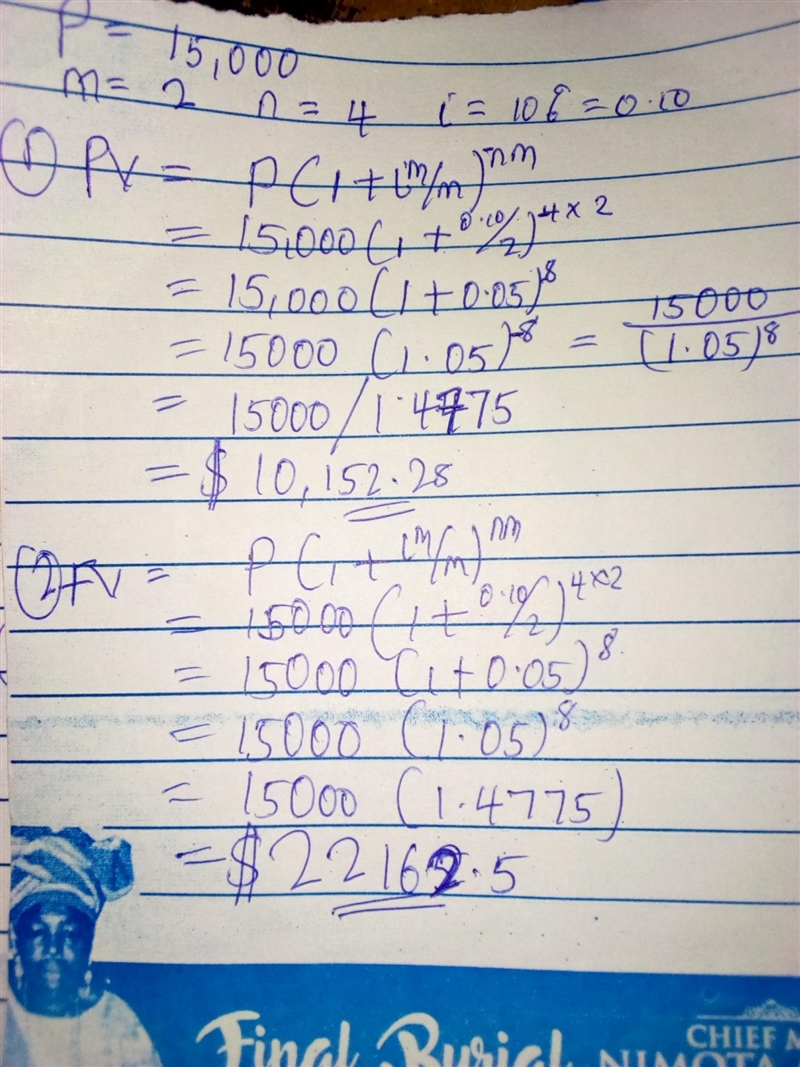 P = 15,000
m = 2 n = 4 i = 10% = 0.10
① PV = P(1 + im/m)^-nm
= 15,000(1 + 0.10/2)^4×2
= 15,000(1 + 0.05)^8
= 15000 (1.05)^-8 = 15000/(1.05)^8
= 15000/1.4775
= $ 10,152.28
② FV = P(1 + im/m)^nm
= 15000(1 + 0.10/2)^4×2
= 15000 (1 + 0.05)^8
= 15000 (1.05)^8
= 15000 (1.4775)
= $22162.5
Final Burial
CHIEF M
NIMOTA